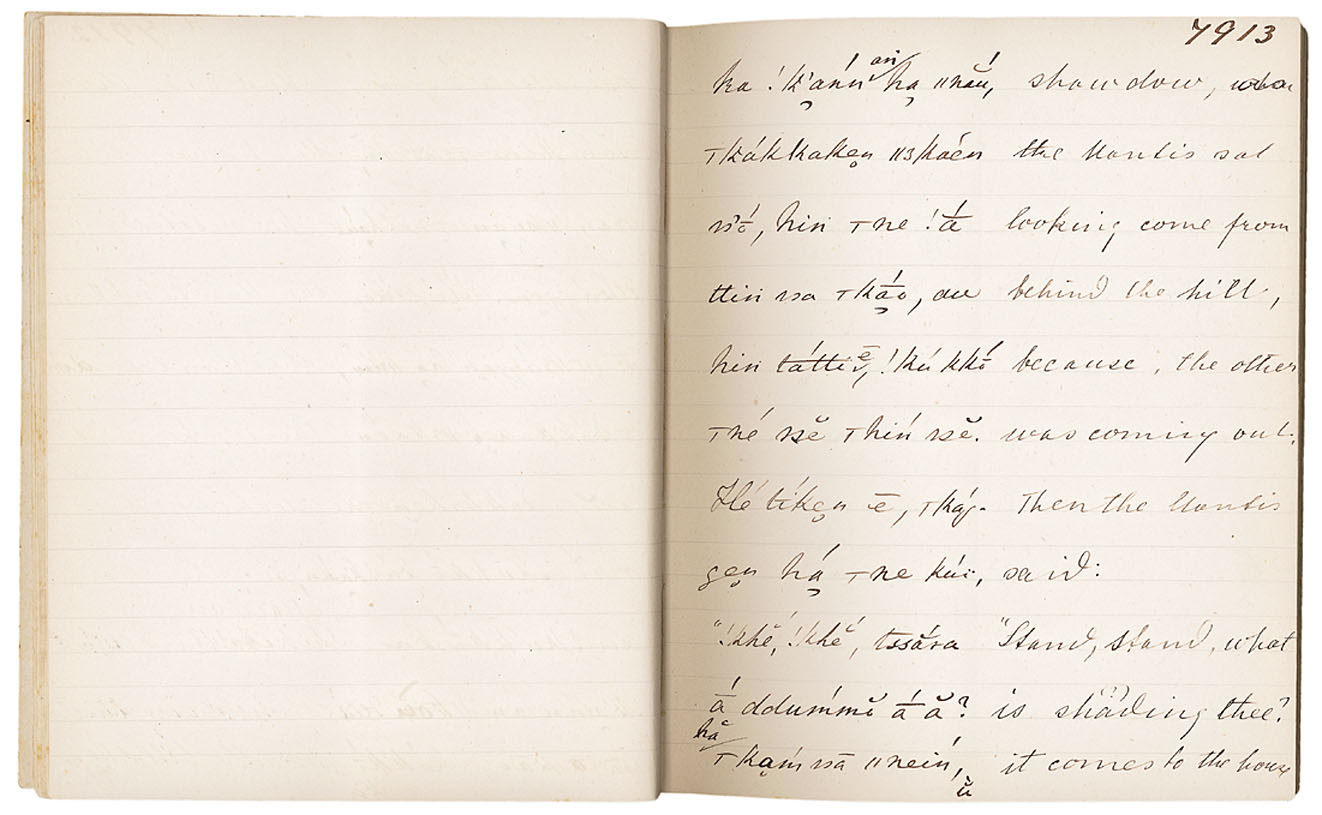 7913
ha !k'ań̄ń ha ǁnău, shawdow, when
Tkákkaken ǁ3kóén the Mantis sat
, hiń Tne !ā́ looking come from
ttiń ssa Tkā́o, au behind the hill,
hiń táttĭ ē, !kúkkō because, the other
Thé ssĕ Thiń ssĕ. was coming out.
Hé tíken ē, Tkág- Then the Mantis
gen há Tne kúï, said:
"!khĕ́, !khĕ́, tssắra "Stand, stand, what
ā́ ddumḿŏ ā́ ă? is shāding thee?
hă Tkaḿ ssā ǁneiń, ŭ it comes to the house